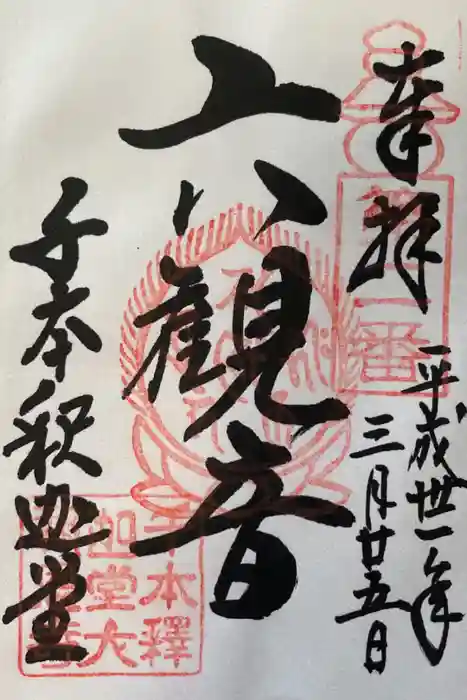 奉拝
平成丗一年
三月廿五日
六観音
千本釈迦堂
番
千本釋
迦堂大
報恩寺